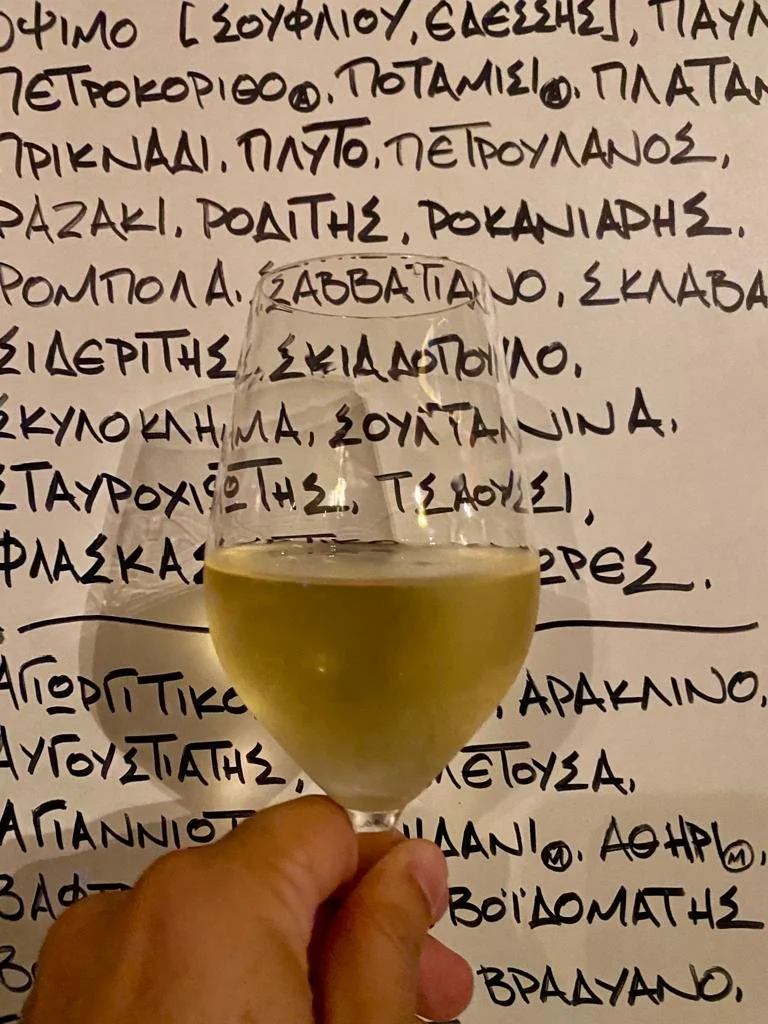 ΟΨΙΜΟ [ΣΟΥΦΛΙΟΥ, ΕΔΕΣΣΗΣ],
ΠΕΤΡΟΚΟΡΙΘΟ Ⓛ, ΠΟΤΑΜΙΣΙ Ⓛ,
ΠΡΙΚΝΑΔΙ, ΠΛΥΤΟ, ΠΕΤΡΟΥΛΑΝΟΣ,
ΡΑΖΑΚΙ, ΡΟΔΙΤΗΣ, ΡΟΚΑΝΙΑΡΗΣ.
ΡΟΜΠΟΛΑ, ΣΑΒΒΑΤΙΑΝΟ, ΣΚΛΑΒΑ
ΣΙΔΕΡΙΤΗΣ, ΣΚΙΑΔΟΠΟΥΛΟ.
ΣΚΥΛΟΚΛΗΜΑ, ΣΟΥΛΤΑΝΙΝΑ,
ΣΤΑΥΡΟΧΙΩΤΗΣ, ΤΣΑΟΥΣΙ,
ΦΛΑΣΚΑΣ
ΑΓΙΩΡΓΙΤΙΚΟ ΑΡΑΚΛΙΝΟ,
ΑΥΓΟΥΣΤΙΑΤΗΣ,
ΑΓΙΑΝΝΙΩΤ ΑΘΗΡΙ Ⓜ,
ΒΟΪΔΟΜΑΤΗΣ
ΒΡΑΔΥΑΝΟ,